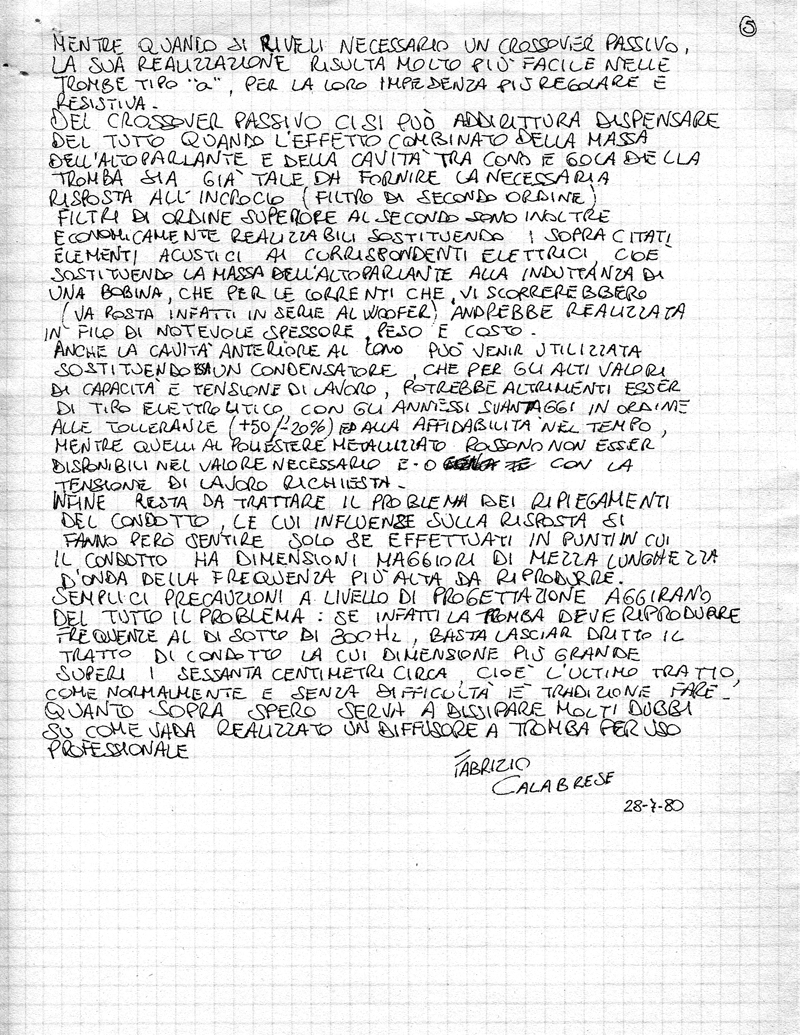 5
MENTRE QUANDO SI RIVELI NECESSARIO UN CROSSOVER PASSIVO,
LA SUA REALIZZAZIONE RISULTA MOLTO PIÙ FACILE NELLE
TROMBE TIPO "a", PER LA LORO IMPEDENZA PIÙ REGOLARE E
RESISTIVA.
DEL CROSSOVER PASSIVO CI SI PUÒ ADDIRITTURA DISPENSARE
DEL TUTTO QUANDO L'EFFETTO COMBINATO DELLA MASSA
DELL'ALTOPARLANTE E DELLA CAVITÀ TRA CONO E GOLA DELLA
TROMBA SIA GIÀ TALE DA FORNIRE LA NECESSARIA
RISPOSTA ALL'INCROCIO (FILTRO DI SECONDO ORDINE)
FILTRI DI ORDINE SUPERORE AL SECONDO SONO INOLTRE
ECONOMICAMENTE REALIZZABILI SOSTITUENDO I SOPRA CITATI
ELEMENTI ACUSTICI AI CORRISPONDENTI ELETTRICI, CIOÈ
SOSTITUENDO LA MASSA DELL'ALTOPARLANTE ALLA INDUTTANZA DI
UNA BOBINA, CHE PER LE CORRENTI CHE VI SCORREREBBERO
(VA POSTA INFATTI IN SERIE AL WOOFER) ANDREBBE REALIZZATA
IN FILO DI NOTEVOLE SPESSORE, PESO E COSTO.
ANCHE LA CAVITÀ ANTERIORE AL CONO PUÒ VENIR UTILIZZATA
SOSTITUENDO UN CONDENSATORE, CHE PER GLI ALTI VALORI
DI CAPACITÀ E TENSIONE DI LAVORO, POTREBBE ALTRIMENTI ESSER
DI TIPO ELETTROLITICO, CON GLI ANNESSI SVANTAGGI IN ORDINE
ALLE TOLLERANZE (+50/-20%) ED ALLA AFFIDABILITÀ NEL TEMPO,
MENTRE QUELLI AL POLIESTERE METALLIZZATO POSSONO NON ESSER
DISPONIBILI NEL VALORE NECESSARIO E-O CON LA
TENSIONE DI LAVORO RICHIESTA.
INFINE RESTA DA TRATTARE IL PROBLEMA DEI RIPIEGAMENTI
DEL CONDOTTO, LE CUI INFLUENZE SULLA RISPOSTA SI
FANNO PERÒ SENTIRE SOLO SE EFFETTUATI IN PUNTI IN CUI
IL CONDOTTO HA DIMENSIONI MAGGIORI DI MEZZA LUNGHEZZA
D'ONDA DELLA FREQUENZA PIÙ ALTA DA RIPRODURRE.
SEMPLICI PRECAUZIONI A LIVELLO DI PROGETTAZIONE AGGIRANO
DEL TUTTO IL PROBLEMA: SE INFATTI LA TROMBA DEVE RIPRODURRE
FREQUENZE AL DI SOTTO DI 300 Hz, BASTA LASCIAR DRITTO IL
TRATTO DI CONDOTTO LA CUI DIMENSIONE PIÙ GRANDE
SUPERI I SESSANTA CENTIMETRI CIRCA, CIOÈ L'ULTIMO TRATTO,
COME NORMALMENTE E SENZA DIFFICOLTÀ È TRADIZIONE FARE.
QUANTO SOPRA SPERO SERVA A DISSIPARE MOLTI DUBBI
SU COME VADA REALIZZATO UN DIFFUSORE A TROMBA PER USO
PROFESSIONALE
FABRIZIO
CALABRESE
28-7-80